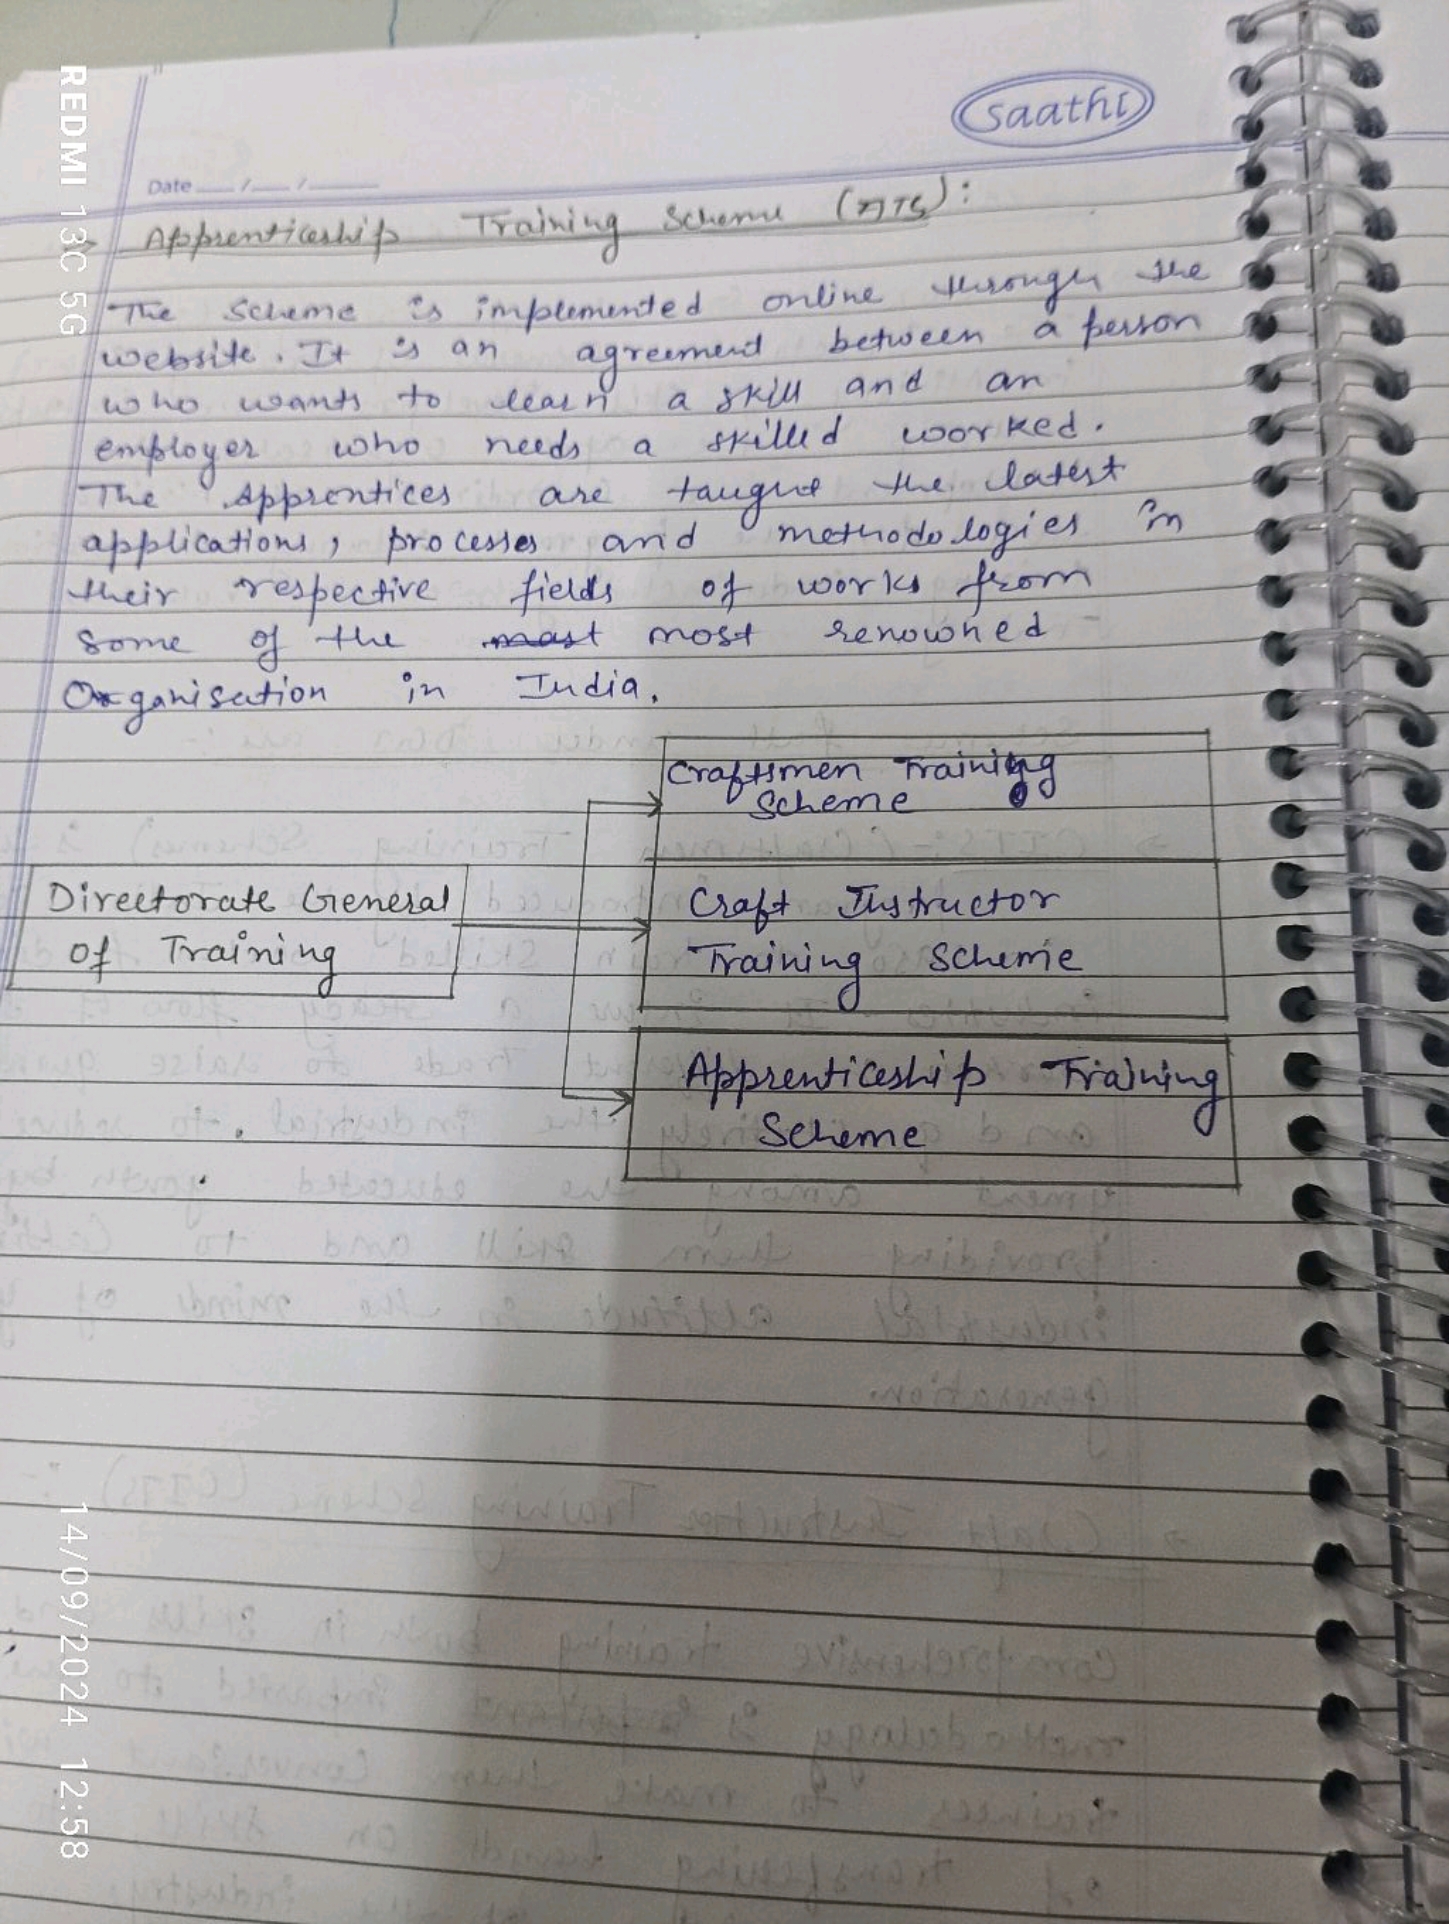 saathi
Date ___/___/______
→ Apprenticeship Training Scheme (ATS):
The Scheme is implemented online through the
website. It is an agreement between a person
who wants to learn a skill and an
employer who needs a skilled worked.
The Apprentices are taught the latest
applications, processes and methodologies in
their respective fields of works from
some of the most most renowned
Organisation in India.
Craftsmen Training
Scheme
Directorate General
of Training
Craft Instructor
Training Scheme
Apprenticeship Training
Scheme
REDMI 13C 5G
14/09/2024 12:58